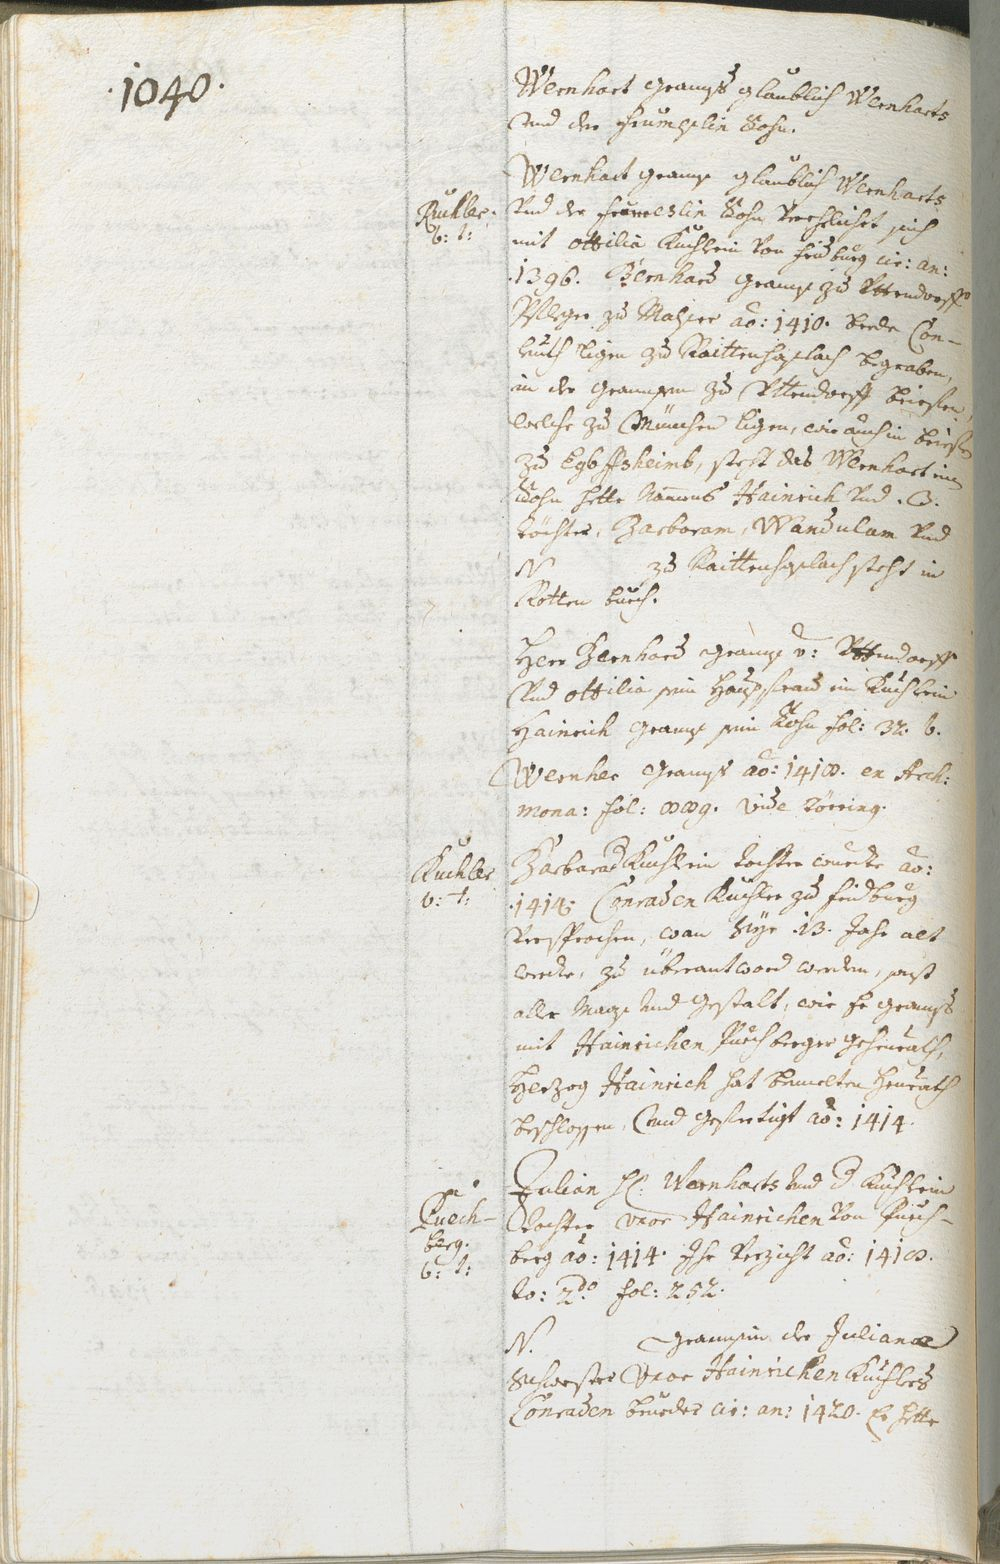 .1040.
Wernhart Gramps glaublich Wernharts
und der Frumeslin Sohn.
Wernhart Grams glaublich Wernharts
Kuchler.
v: t:
und der Frumeslin Sohn verehlichet sich
mit Ottilia Kuchlein von Fridburg cir: an:
.1396. Bernhard Grams zu Uttendorff
Pfleger zu ao: 1410. beede Con-
leuth ligen zu Raittenhaslach begraben,
in der Grampen zu Uttendorff briefen,
welche zu München ligen, wie auch in brief
zu Egloffsheimb, steht das Wernhart ein
Sohn hette Namens Hainrich und .3.
töchter, Barbaram, Wandulam und
N zu Raittenhaslach steht in
Rotten buech.
Herr Bernhard Gramps v: Uttendorff
und Ottilia sein Hausfrau ein Kuchlein
Hainrich Gramps sein Sohn fol: 32. v.
Wernher Gramps ao: 1418. ex Arch:
mona: fol: 889. vide Törring.
Kuchler
v: t:
Barbara d Kuchlein tochter wurde ao:
.1414. Conraden Kuchler zu Fridburg
versprochen, wan Sye .13. Jahr alt
werde, zu überantword werden, auf
alle mass und gestalt, wie h Gramps
mit Hainrichen Puechberger geheurath,
Herzog Hainrich hat bemelten heurath
beschlossen, und gefertigt ao: 1414.
Puech-
berg.
v: t:
Julian H: Wernharts und d Kuchlein
tochter uxor Hainrichen von Puech-
berg ao: 1414. Ihr verzicht ao: 1418.
to: 2do fol: 252.
N. Grampin der Julianae
Schwester uxor Hainrichen Kuchlers
Conraden brueder cir: an: 1420. Er hette